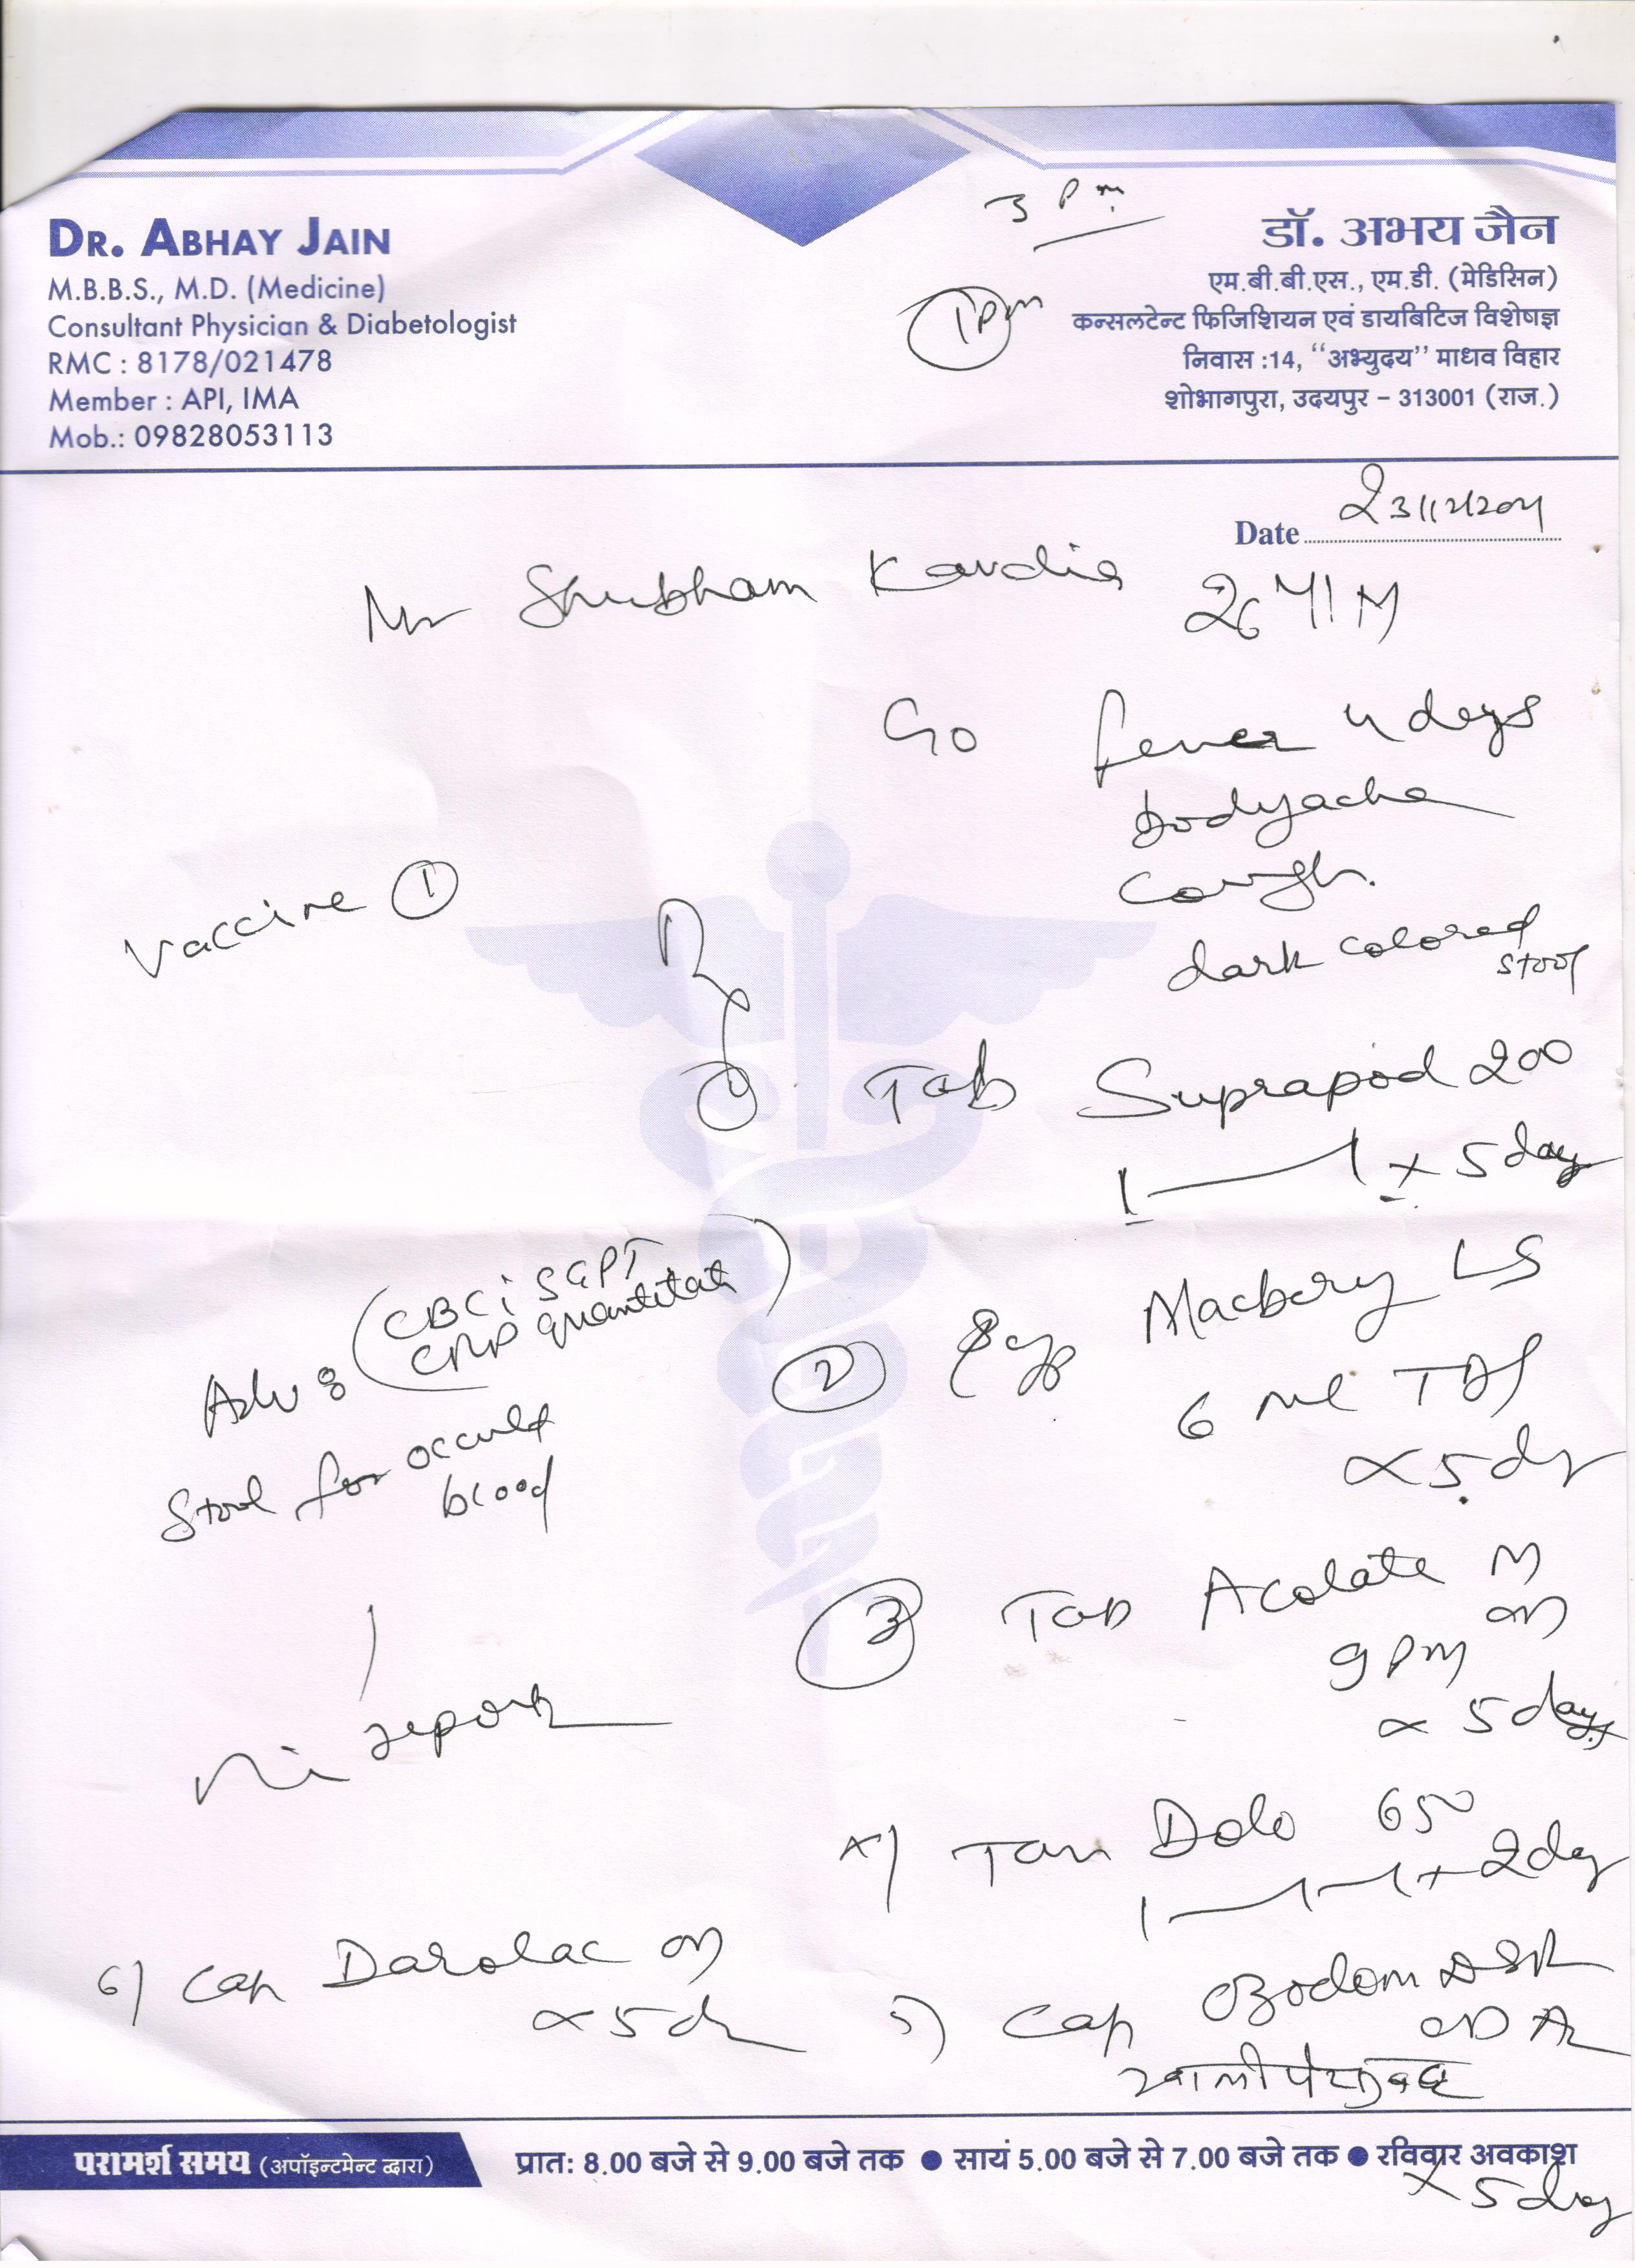 3 Pm
1 Pm
DR. ABHAY JAIN
M.B.B.S., M.D. (Medicine)
Consultant Physician & Diabetologist
RMC : 8178/021478
Member : API, IMA
Mob.: 09828053113
डॉ. अभय जैन
एम.बी.बी.एस., एम.डी. (मेडिसिन)
कन्सलटेन्ट फिजिशियन एवं डायबिटिज विशेषज्ञ
निवास :14, “अभ्युदय” माधव विहार
शोभागपुरा, उदयपुर – 313001 (राज.)
Date
Mr Shubham Kavdia 26 Y/M
fever 4 days
bodyache
cough.
dark colored
stool
Vaccine 1
Rx
Tab Suprapod 200
1 — 1 x 5 day
Adv : (CBC; SGPT
CRP quantitati)
Stool for occult
blood
2 Syp Macbery LS
6 ml TDS
x 5 dy
3 Tab Acolate M
on
9 Pm
x 5 days
report
Tab Dolo 650
1 — 1 — 1 x 2 dy
5) Cap Ozodom DSR
OD
खाली पेट सुबह
x 5 day
6) Cap Darolac
x 5 d
परामर्श समय (अपॉइन्टमेन्ट द्वारा)
प्रात: 8.00 बजे से 9.00 बजे तक ● सायं 5.00 बजे से 7.00 बजे तक ● रविवार अवकाश